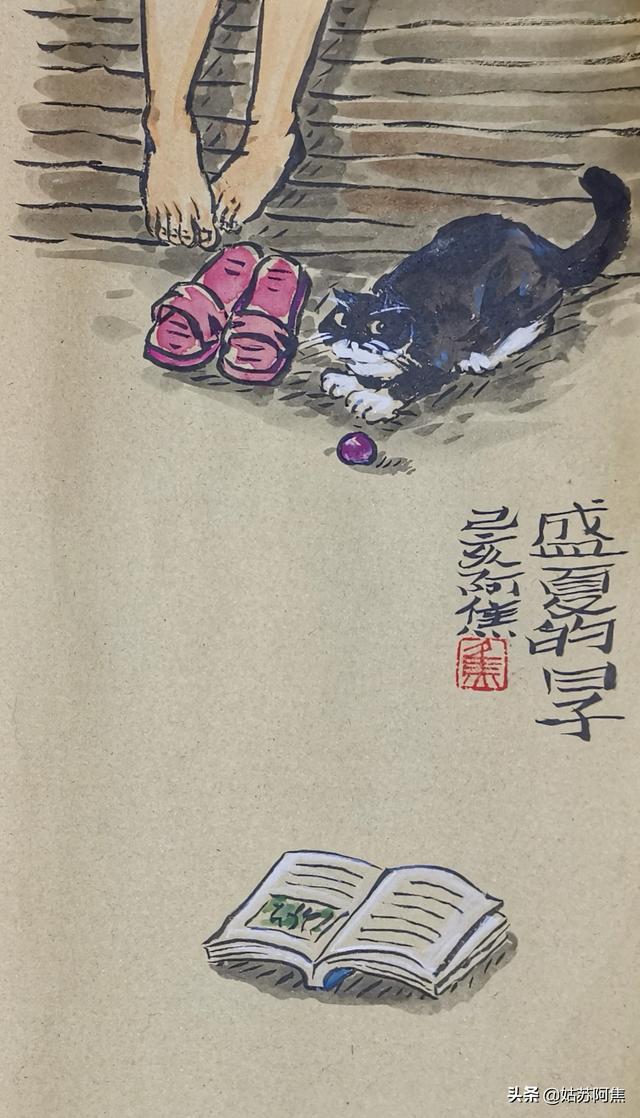 盛夏的日子
己亥阿焦
焦
头条 @姑苏阿焦